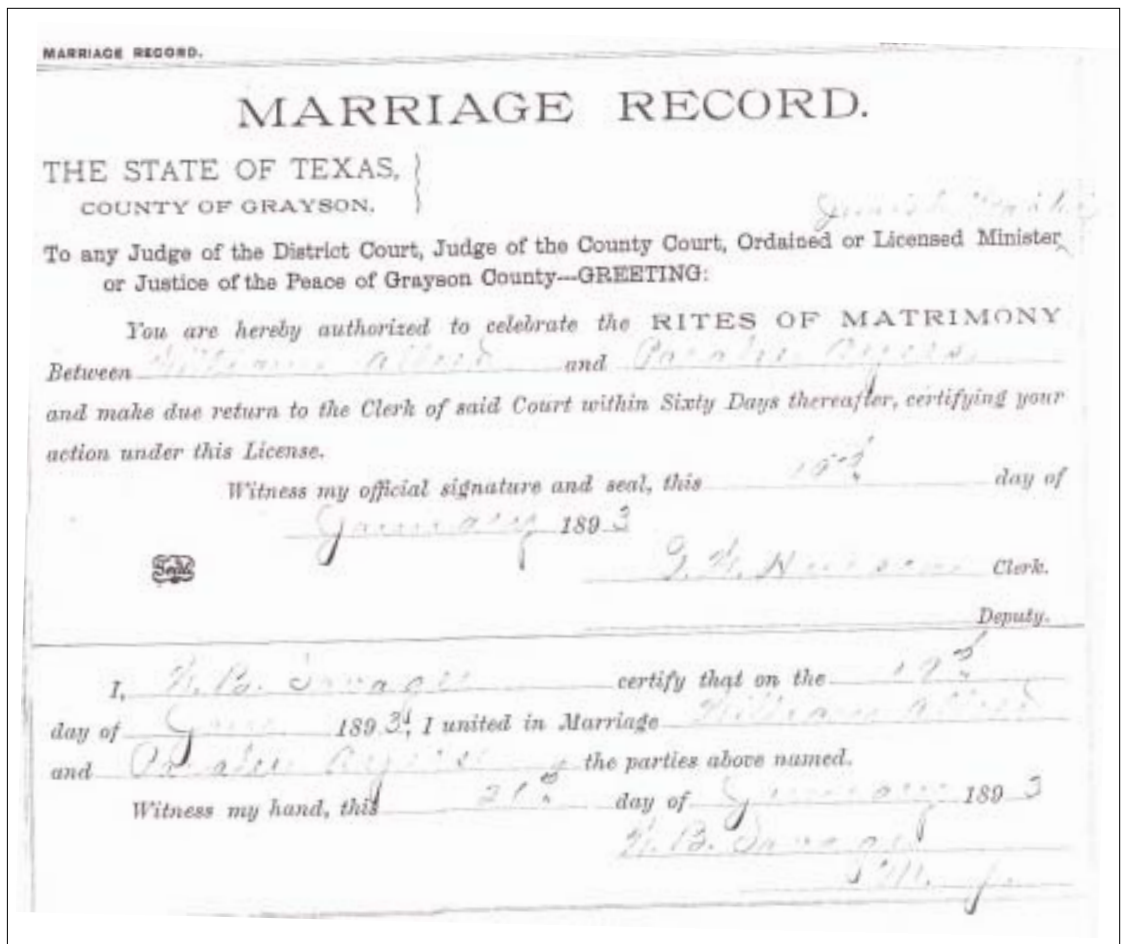 MARRIAGE RECORD.
MARRIAGE RECORD.
THE STATE OF TEXAS,
COUNTY OF GRAYSON.
To any Judge of the District Court, Judge of the County Court, Ordained or Licensed Minister
or Justice of the Peace of Grayson County—GREETING:
You are hereby authorized to celebrate the RITES OF MATRIMONY
Between William and
and make due return to the Clerk of said Court within Sixty Days thereafter, certifying your
action under this License.
Witness my official signature and seal, this day of
January 1893
Seal Clerk.
Deputy.
I, B. Savage certify that on the 19 day of
Jany 1893, I united in Marriage William
and the parties above named.
Witness my hand, this 21 day of January 1893
B. Savage